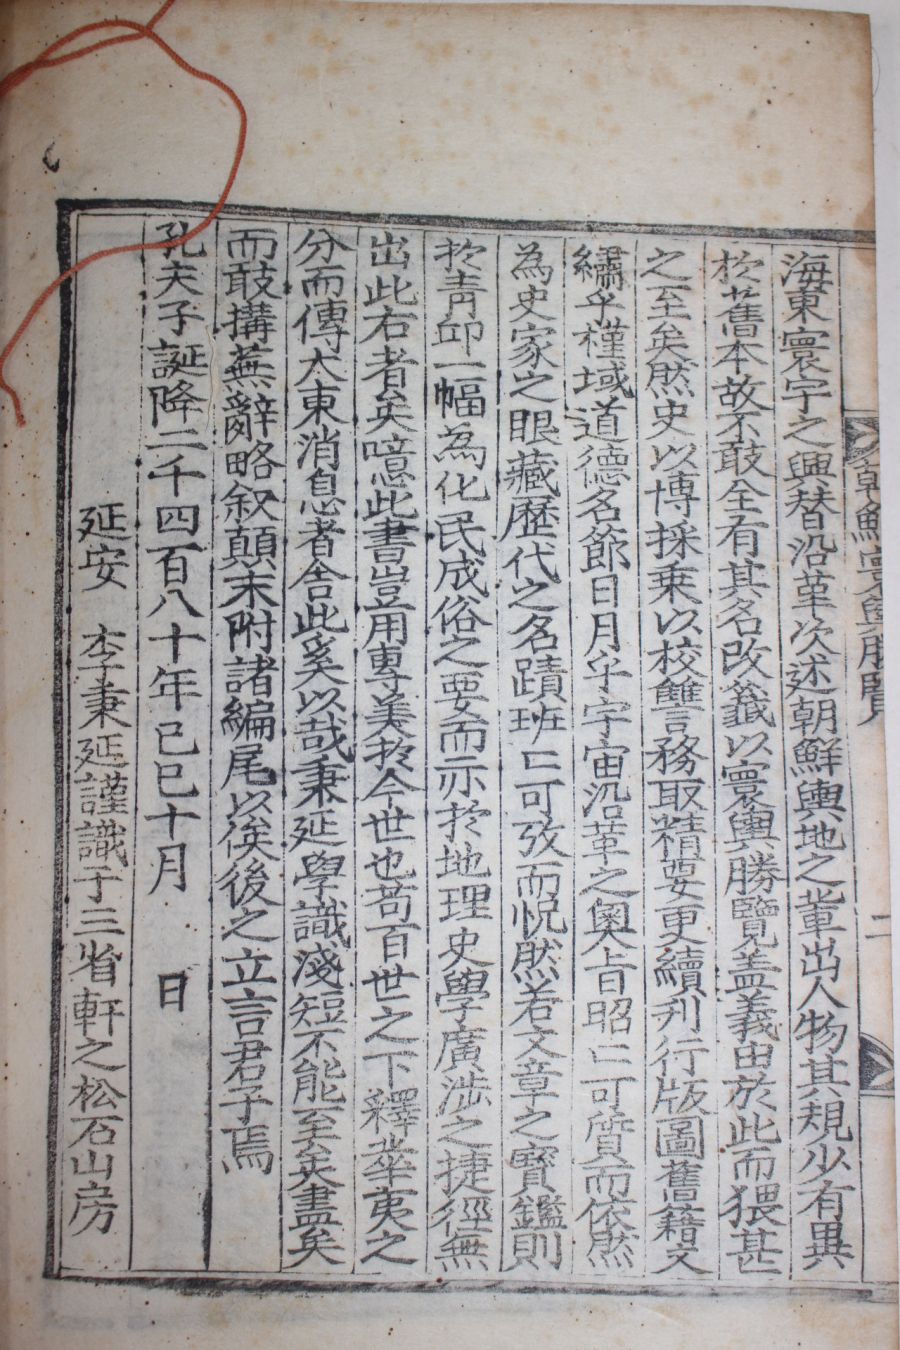 朝鮮寰輿勝覽
二
海東寰宇之興替沿革次述朝鮮輿地之輩出人物其規少有異
於舊本故不敢全有其名改籤以寰輿勝覽盖義由於此而猥甚
之至矣然史以博採乘以校讐言務取精要更續刋行版圖舊籍文
繡乎槿域道德名節日月乎宇宙沿革之奧旨昭〻可質而依然
為史家之眼藏歷代之名蹟班〻可攷而怳然若文章之寶鑑則
於靑邱一幅為化民成俗之要而亦於地理史學廣涉之捷徑無
出此右者矣噫此書豈用專美於今世也苟百世之下釋華夷之
分而傳大東消息者舍此奚以哉秉延學識淺短不能至矣盡矣
而敢搆蕪辭略叙顚末附諸編尾以俟後之立言君子焉
孔夫子誕降二千四百八十年己巳十月 日
延安 李秉延謹識于三省軒之松石山房